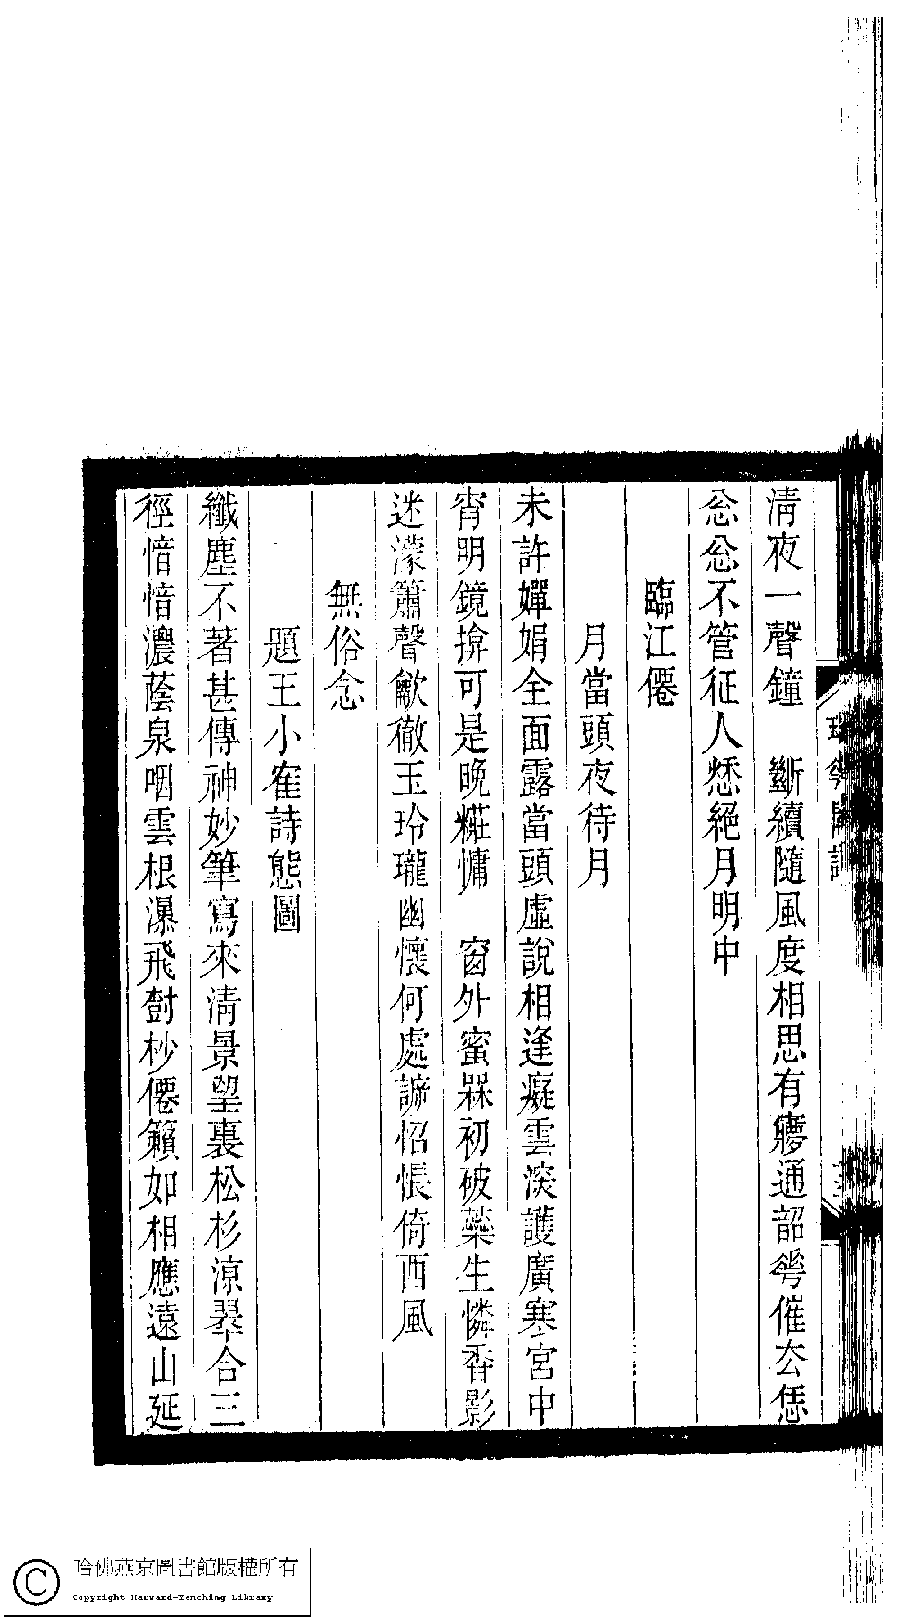 清夜一聲鐘　斷續隨風度相思有㝱通韶華催厺恁
忩忩不管征人愁絕月明中
臨江僊
月當頭夜待月
未許嬋娟全面露當頭虛說相逢癡雲淡護廣寒宮中
宵明鏡揜可是晚糚慵　窗外蜜槑初破蘂生憐香影
迷濛簫聲歔徹玉玲瓏幽懷何處訴怊悵倚西風
無俗念
題王小隺詩態圖
纖塵不著甚傳神妙筆寫來清景望裏松杉涼翠合三
徑愔愔濃蔭泉咽雲根瀑飛尌杪僊籟如相應遠山延
哈佛燕京圖書館版權所有
Copyright Harvard-Yenching Library